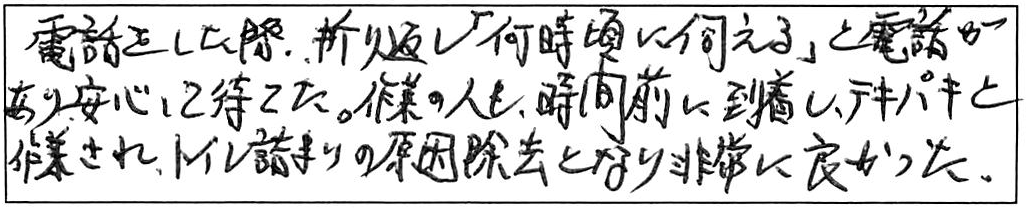 電話をした際、折り返し「何時頃に伺える」と電話が
あり、安心して待てた。作業の人も、時間前に到着し、テキパキと
作業され、トイレ詰まりの原因除去となり非常に良かった。